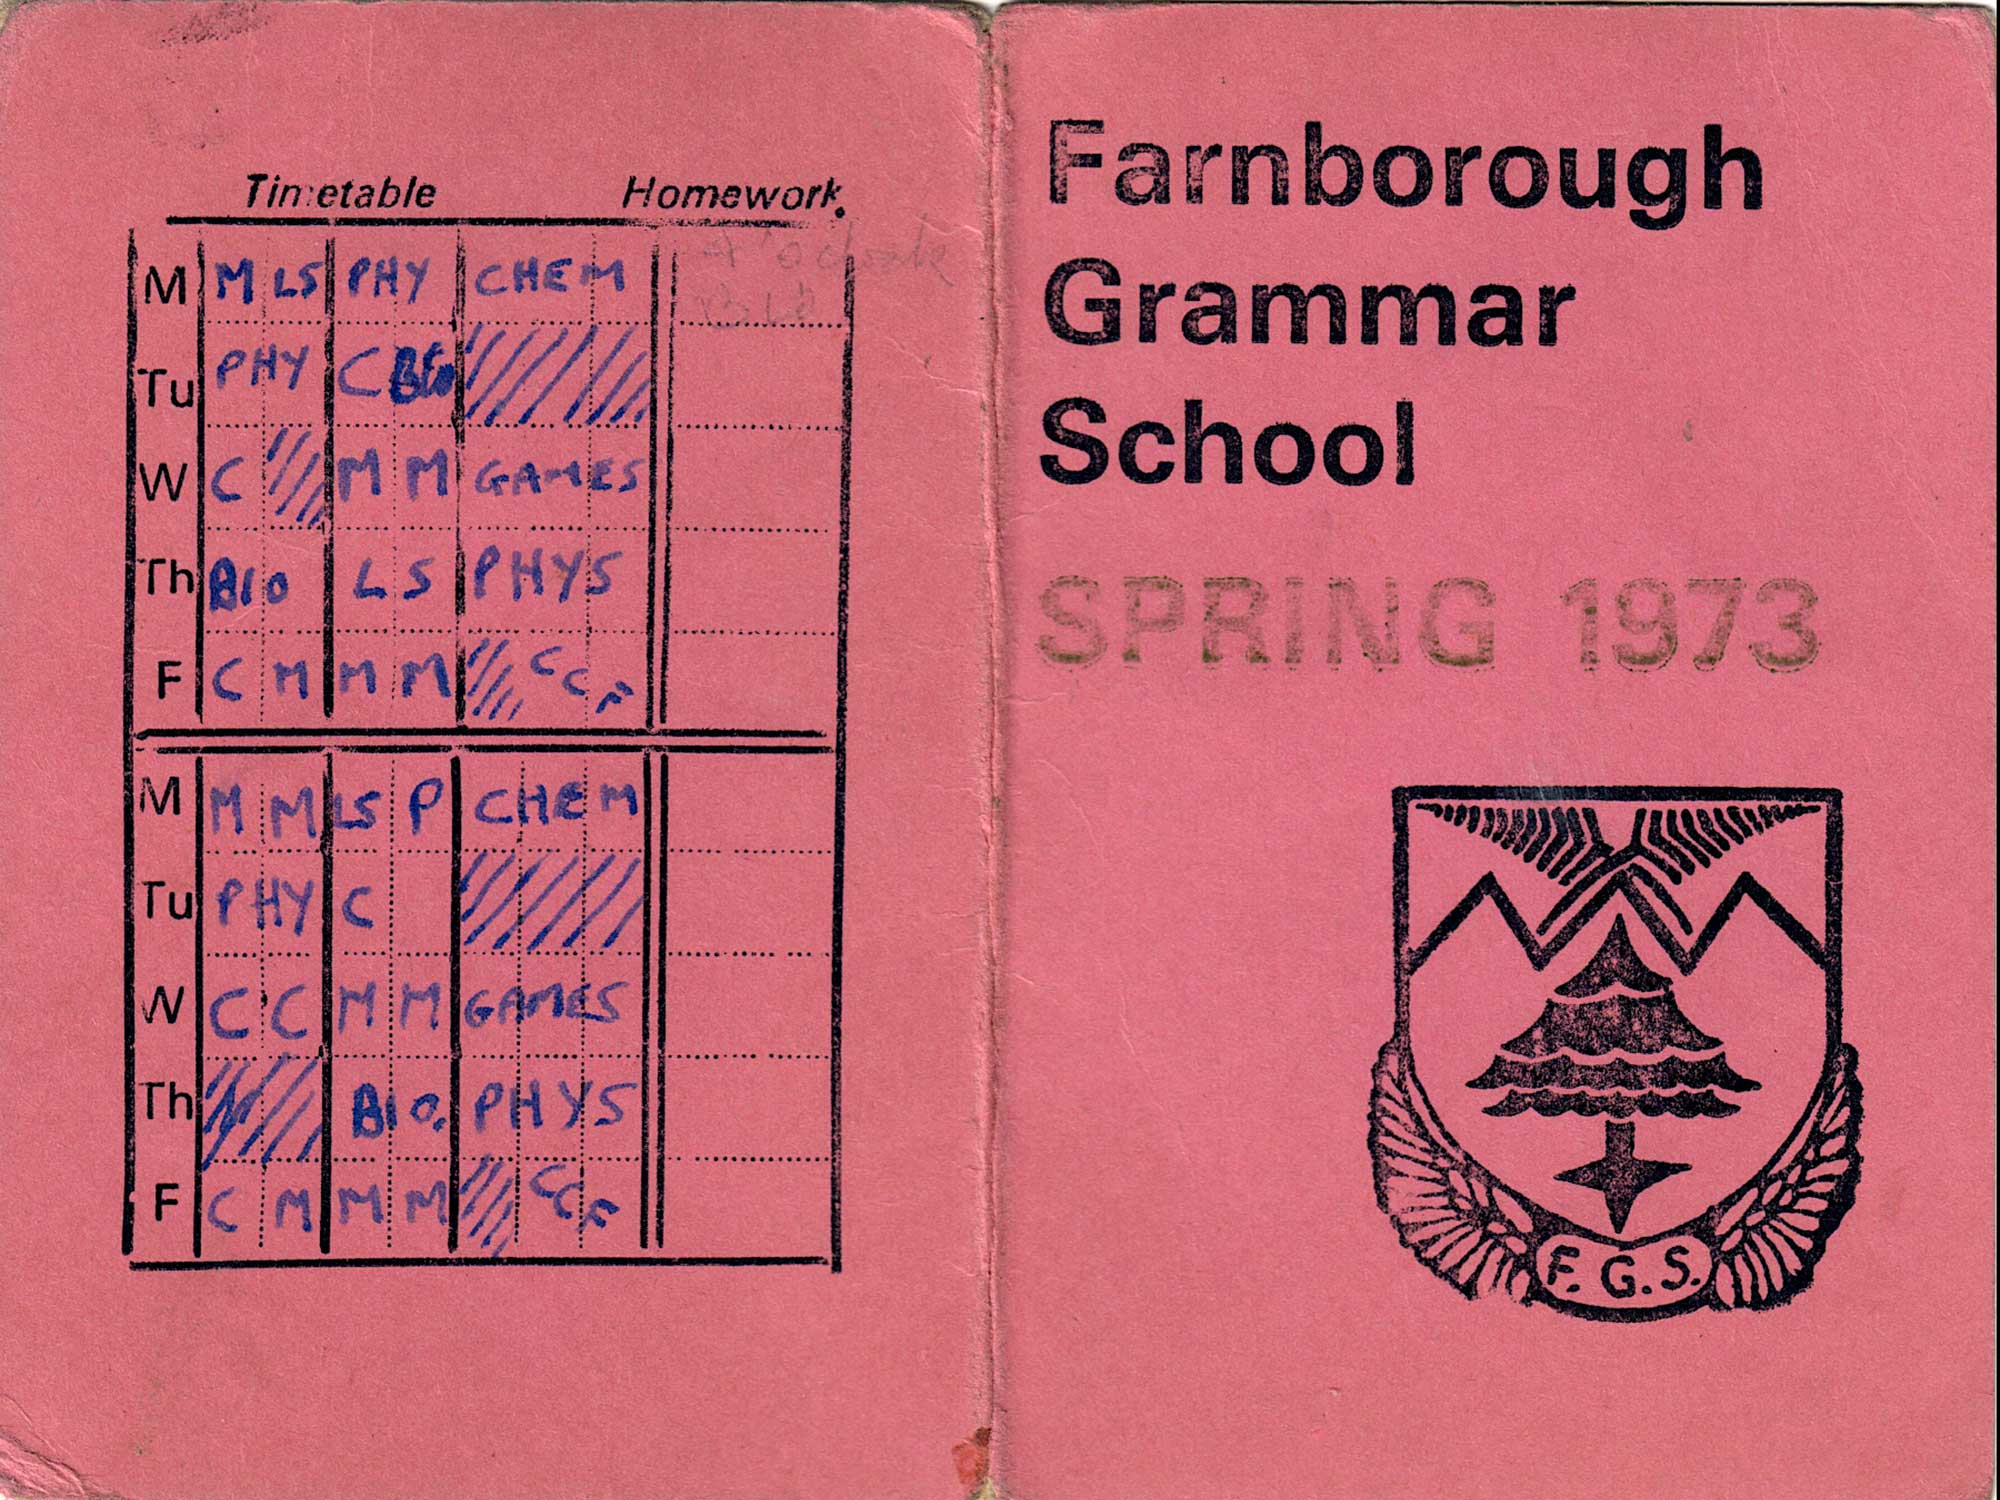 Timetable Homework
M M LS PHY CHEM
4 o'clock
Tu PHY C BIO
W C M M GAMES
Th BIO LS PHYS
F C M M M CCF
M M M LS P CHEM
Tu PHY C
W C C M M GAMES
Th BIO. PHYS
F C M M M CCF
Farnborough
Grammar
School
SPRING 1973
F. G. S.